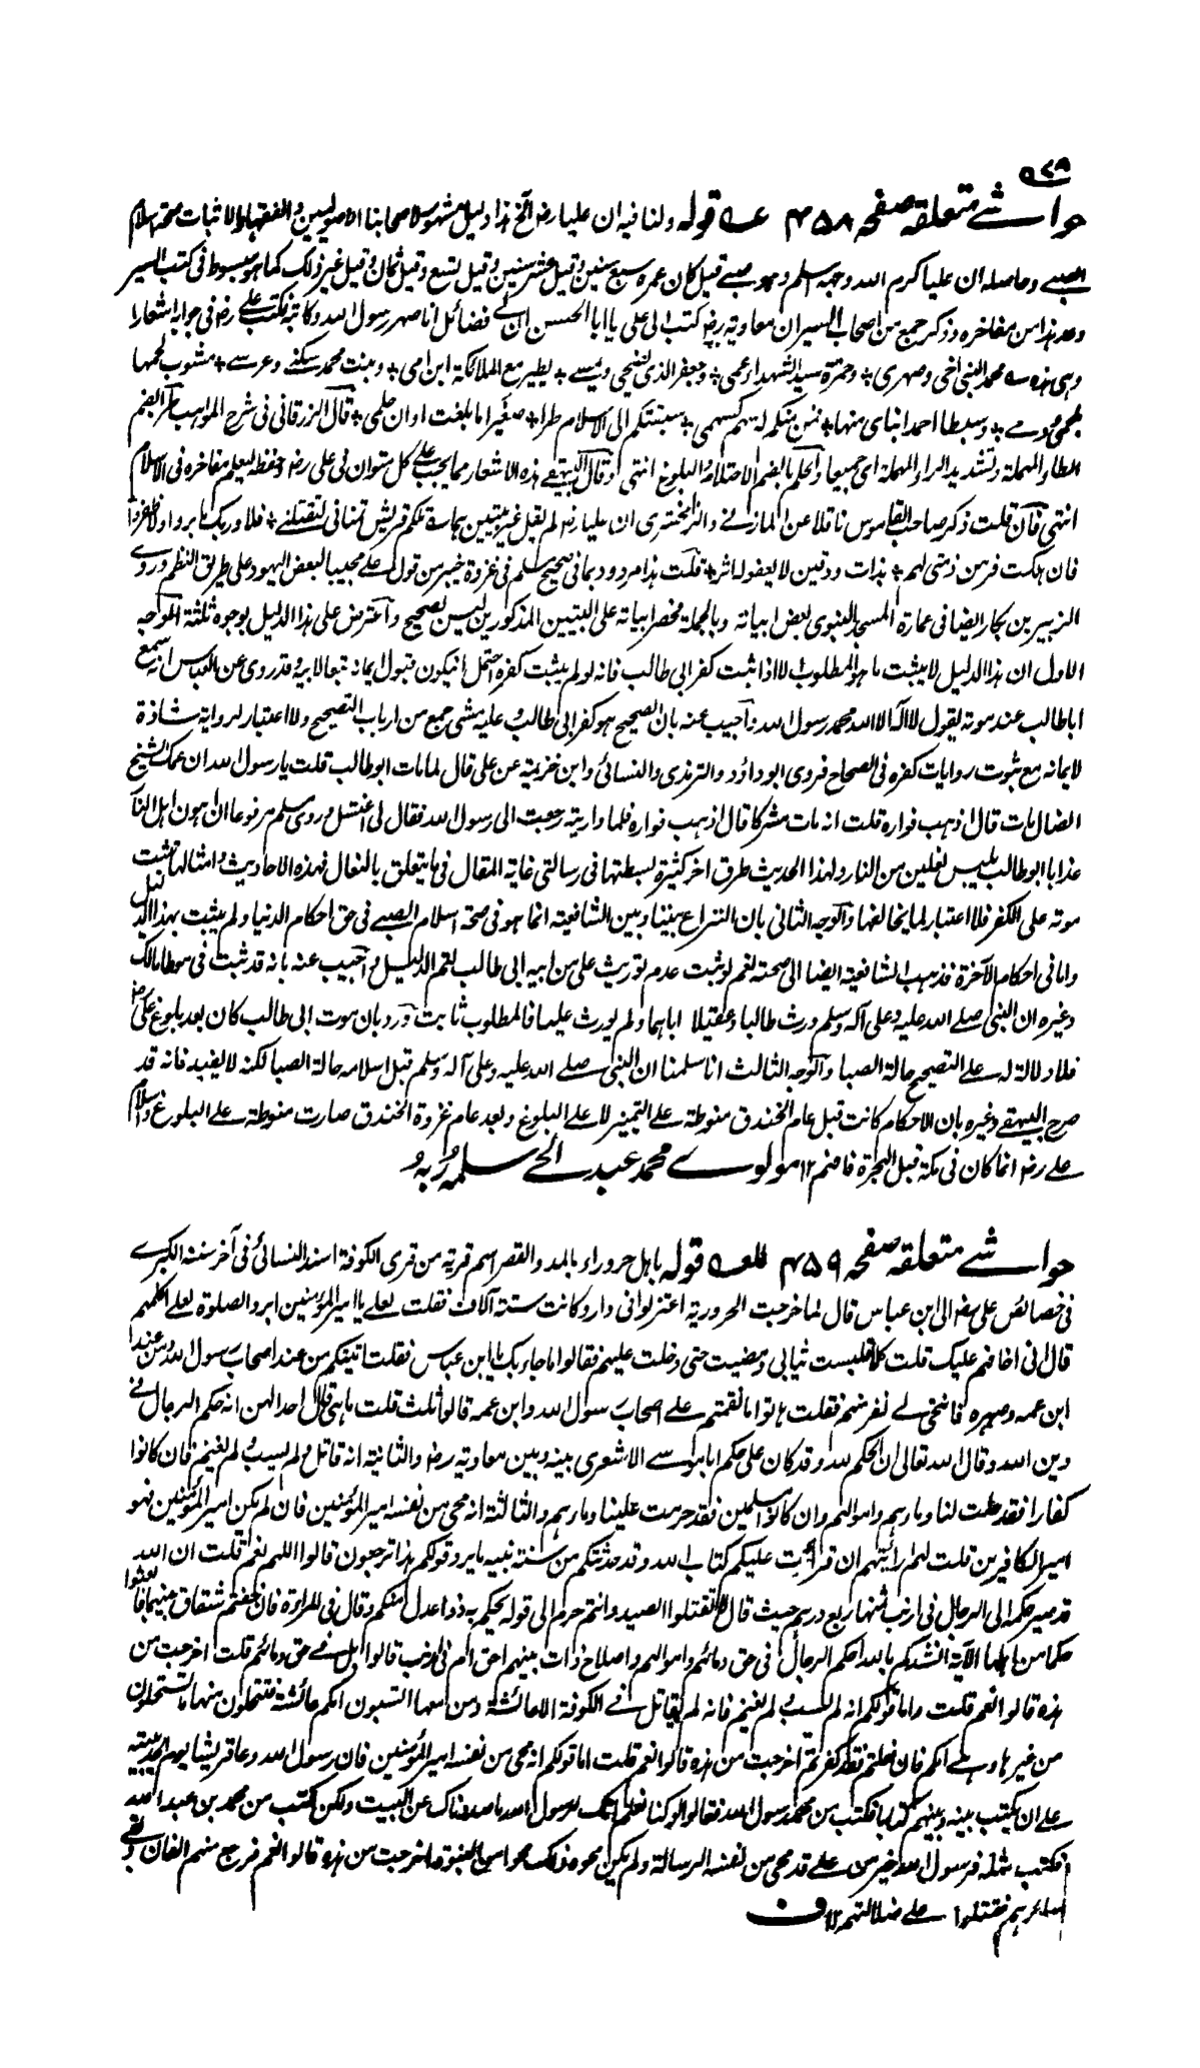 ٥٢٩
حواشے متعلقہ صفحہ ٤٥٨ عہ قولہ ولنا فيه ان عليا رضہ الخ هذا دليل مشهور لاصحابنا الاصوليين والفقهاء لاثبات صحة اسلام
الصبے وحاصله ان عليا كرم الله وجهه اسلم وهو صبے قيل كان عمره سبع سنين وقيل عشر سنين وقيل تسع وقيل ثمان وقيل غير ذلك كما هو مبسوط فى كتب السير
وعد هذا من مفاخره وذكر جمع من اصحاب السير ان معاوية رضہ كتب الى على يا ابا الحسن ان لى فضائل انا صهر رسول الله وكاتبه فكتب على رضہ فى جوابه اشعارا
وهى هذه سه محمد النبى اخى وصهرى * وحمزة سيد الشهداء عمى * وجعفر الذى يضحى ويمسے * يطير مع الملائكة ابن امى * وبنت محمد سكنى وعرسے * مشوب لحمها
بلحمى ودمے * وسبطا احمد ابناى منها * فمن منكم له سهم كسهمى * سبقتكم الى الاسلام طرا * صغيرا ما بلغت اوان حلمى * قال الزرقانى فى شرح المواهب طرا بضم
الطاء المهملة وتشديد الراء المهملة اى جميعا والحلم بالضم الاحتلام او البلوغ انتهى وقال البيهقے هذه الاشعار مما يجب على كل متوان فى على رضہ حفظه ليعلم مفاخره فى الاسلام
انتهى فان قلت ذكر صاحب القاموس ناقلا عن المازنے والزمخشرى ان عليا رضہ لم يقل غير بيتين هما سه تلكم قريش تمنانى لتقتلنے * فلا وربك ما بروا ولا ظفروا
فان هلكت فرهن ذمتى لهم * بذات ودقين لا يعفو لها اثر * قلت هذا مردود بما فى صحيح مسلم فى غزوة خيبر من قول على مجيبا لبعض اليهود على طريق النظم وروے
الزبير بن بكار ايضا فى عمارة المسجد النبوى بعض ابياته وبالجملة فحصر ابياته على البيتين المذكورين ليس بصحيح واعترض على هذا الدليل بوجوه ثلثة الوجه
الاول ان هذا الدليل لا يثبت ما هو المطلوب الا اذا ثبت كفر ابى طالب فانه لو لم يثبت كفره احتمل ان يكون قبول ايمانه تبعا لابيه وقد روى عن العباس انه سمع
ابا طالب عند موته يقول لا اله الا الله محمد رسول الله واجيب عنه بان الصحيح هو كفر ابى طالب وعليه مشى جمع من ارباب التصحيح ولا اعتبار لرواية شاذة
لايمانه مع ثبوت روايات كفره فى الصحاح فروى ابو داؤد والترمذى والنسائى وابن خزيمة عن على قال لما مات ابو طالب قلت يا رسول الله ان عمك الشيخ
الضال مات قال اذهب فواره قلت انه مات مشركا قال اذهب فواره فلما واريته رجعت الى رسول الله فقال لى اغتسل وروى مسلم مرفوعا ان اهون اهل النار
عذابا ابو طالب يلبس نعلين من النار ولهذا الحديث طرق اخر كثيرة بسطتها فى رسالتى غاية المقال فى ما يتعلق بالنعال فهذه الاحاديث وامثالها تثبت
موته على الكفر فلا اعتبار لما يخالفها والوجه الثانى بان النزاع بيننا وبين الشافعية انما هو فى صحة اسلام الصبے فى حق احكام الدنيا ولم يثبت بهذا الدليل
واما فى احكام الآخرة فذهب الشافعية ايضا الى صحته نعم لو ثبت عدم توريث على من ابيه ابى طالب لتم الدليل واجيب عنه بانه قد ثبت فى موطا مالك
وغيره ان النبى صلے الله عليه وعلى آله وسلم ورث طالبا وعقيلا اباهما ولم يورث عليا فالمطلوب ثابت ورد بان موت ابى طالب كان بعد بلوغ على رضہ
فلا دلالة له علے التصحيح حالة الصبا والوجه الثالث انا سلمنا ان النبى صلے الله عليه وعلى آله وسلم قبل اسلامه حالة الصبا لكنه لا يفيد فانه قد
صرح البيهقے وغيره بان الاحكام كانت قبل عام الخندق منوطة علے التميز لا علے البلوغ وبعد عام غزوة الخندق صارت منوطة علے البلوغ واسلام
علے رضہ انما كان فى مكة قبل الهجرة فافهم ١٢ مولوے محمد عبد الحے سلمه ربه
حواشے متعلقہ صفحہ ٤٥٩ للعہ قولہ باهل حروراء بالمد والقصر اسم قرية من قرى الكوفة اسند النسائى فى آخر سننه الكبرے
فى خصائص على رضہ الى ابن عباس قال لما خرجت الحرورية اعتزلوا فى دار وكانت ستة آلاف فقلت لعلے يا امير المؤمنين ابرد الصلوة لعلے اكلمهم
قال انى اخافهم عليك قلت كلا فلبست ثيابى ومضيت حتى دخلت عليهم فقالوا ما جاء بك يا ابن عباس فقلت اتيتكم من عند اصحاب رسول الله ومن عند
ابن عمه وصهره فانتحى لے نفر منهم فقلت هاتوا ما نقمتم علے اصحاب رسول الله وابن عمه قالوا ثلث قلت ما هى قال احداهن انه حكم الرجال فے
دين الله وقال الله تعالى ان الحكم الا لله وقد كان على حكم ابا موسے الاشعرى بينه وبين معاوية رضہ والثانية انه قاتل ولم يسب ولم يغنم فان كانوا
كفارا فقد حلت لنا دماؤهم واموالهم وان كانوا مسلمين فقد حرمت علينا دماؤهم والثالثة انه محى من نفسه امير المؤمنين فان لم يكن امير المؤمنين فهو
امير الكافرين قلت لهم ارأيتم ان قرأت عليكم كتاب الله وقد حدثتكم من سنة نبيه ما يرد قولكم هذا ترجعون قالوا اللهم نعم قلت ان الله
قد صير حكمه الى الرجال فى ارنب ثمنها ربع درهم حيث قال لا تقتلوا الصيد وانتم حرم الى قوله يحكم به ذوا عدل منكم وقال فى المراءة فان خفتم شقاق بينهما فابعثوا
حكما من اهلها الآية انشدكم بالله احكم الرجال فى حق دمائهم واموالهم واصلاح ذات بينهم احق ام فى ارنب قالوا بل فے حق دمائهم قلت اخرجت من
هذه قالوا نعم قلت واما قولكم انه لم يسب ولم يغنم فانه لم يقاتل فے الكوفة الا عائشة ومن معها اتسبون امكم عائشة فتستحلون منها ما تستحلون
من غيرها وهے امكم فان فعلتم فقد كفرتم اخرجت من هذه قالوا نعم قلت اما قولكم انه محى من نفسه امير المؤمنين فان رسول الله دعا قريشا يوم الحديبية
علے ان يكتب بينه وبينهم كتابا فكتب من محمد رسول الله فقالوا لو كنا نعلم انك رسول الله ما صددناك عن البيت ولكن اكتب من محمد بن عبد الله
فكتب مثله فرسول الله خير من علے قد محى من نفسه الرسالة ولم يكن محوه ذلك محوا من النبوة اخرجت من هذه قالوا نعم فرجع منهم الفان وبقے
سائرهم فقتلوا علے ضلالتهم ١٢ ف